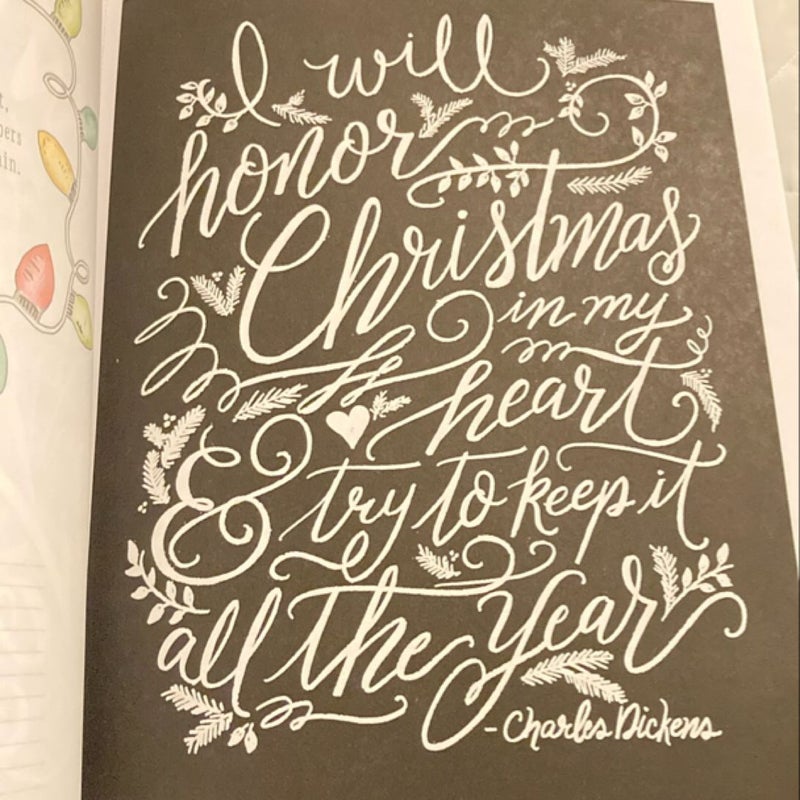 I will
honor
Christmas
in my
heart
& try to keep it
all the Year
- Charles Dickens